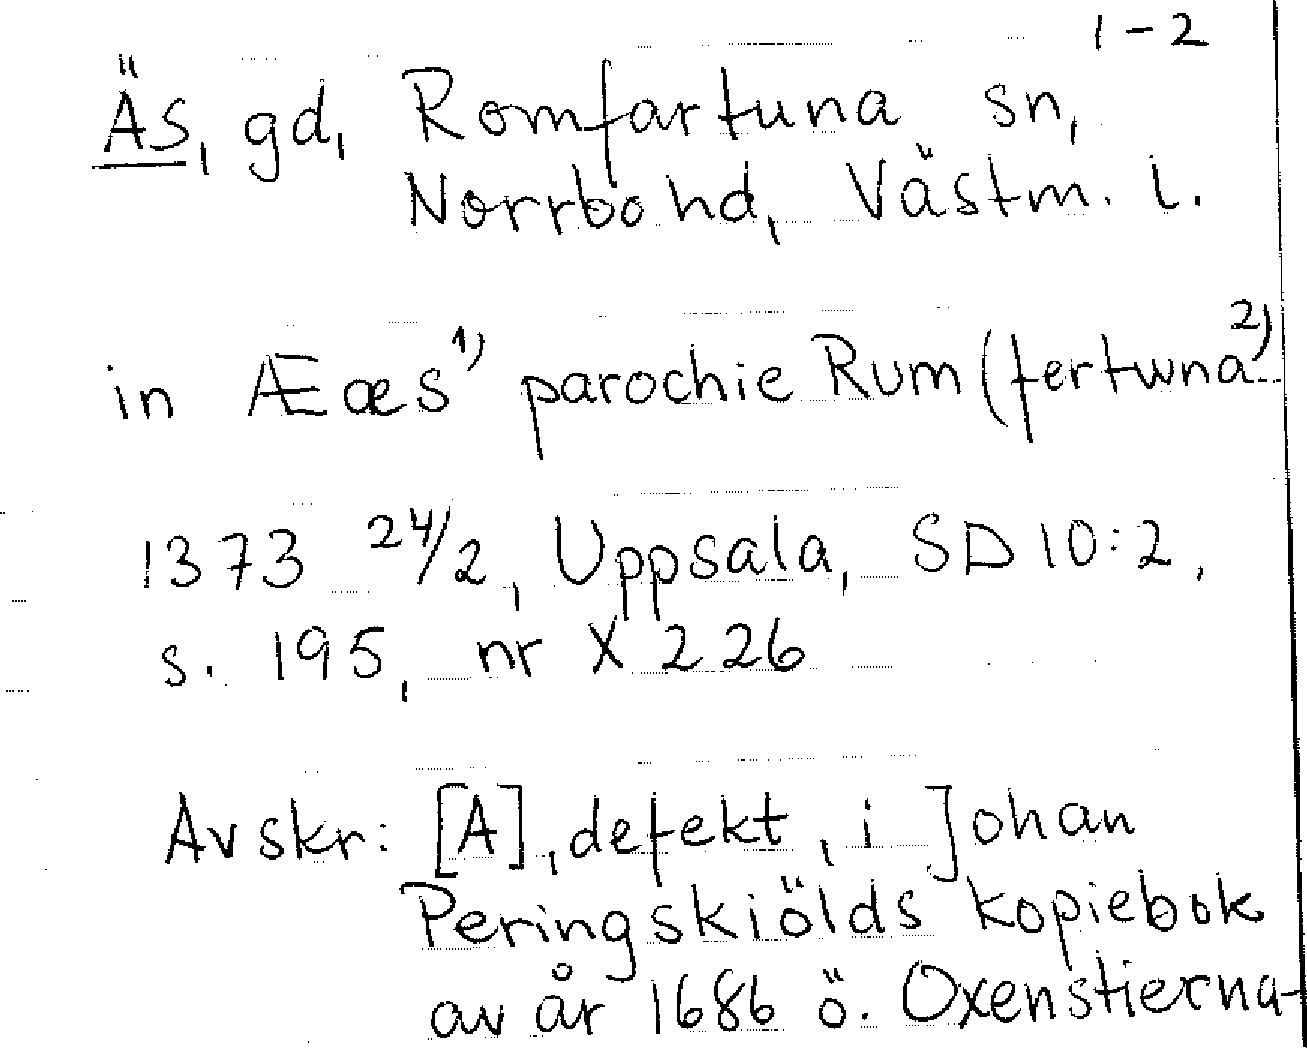 1-2
Äs, gd, Romfartuna sn,
Norrbo hd, Västm. l.
in Æ æs 1) parochie Rum(fertwna 2)
1373 24/2, Uppsala, SD 10:2,
s. 195, nr X 226
Avskr: [A], defekt, i Johan
Peringskiölds kopiebok
av år 1686 ö. Oxenstierna-